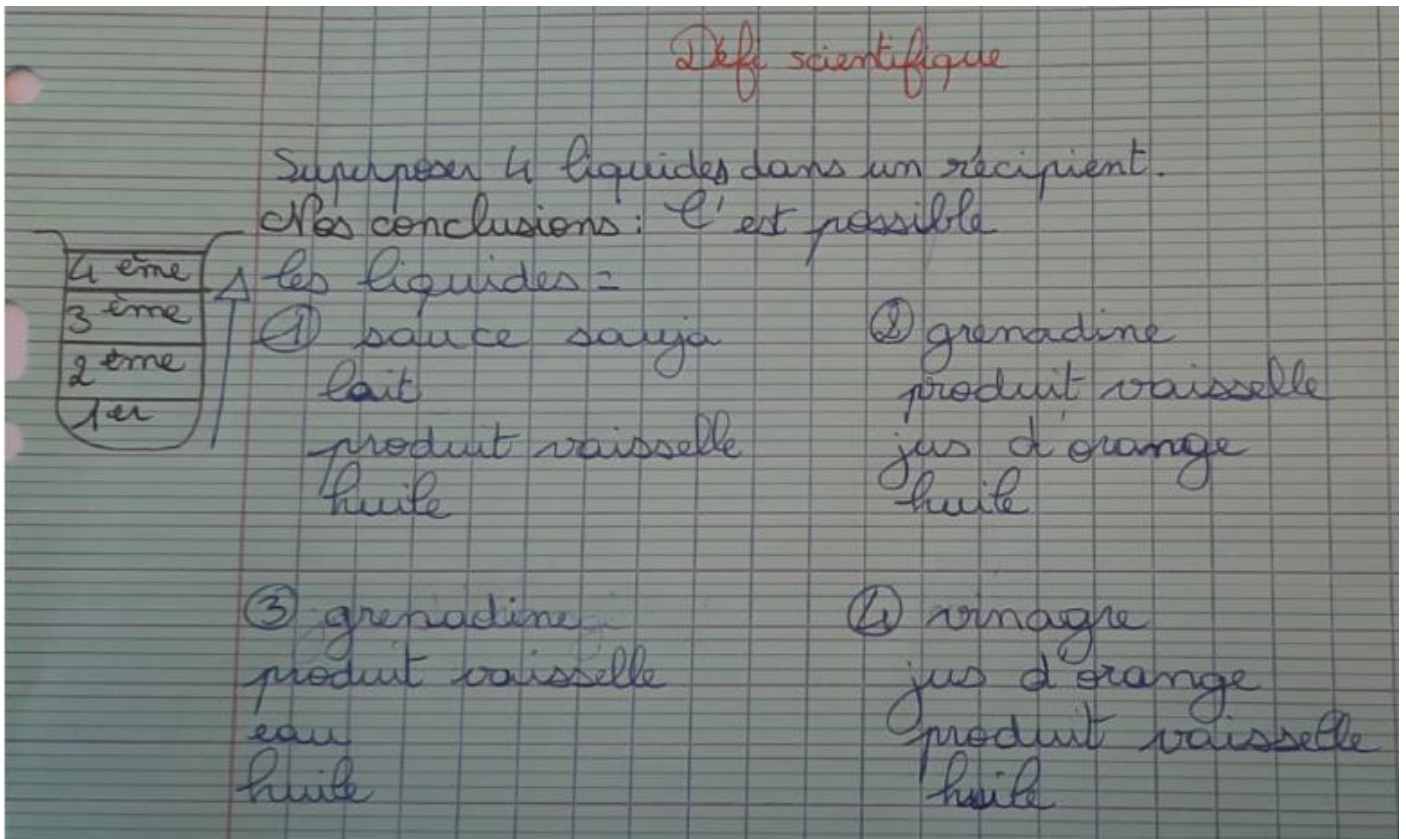 Défi scientifique
Superposer 4 liquides dans un récipient.
Nos conclusions : C'est possible
les liquides =
4 ème
3 ème
2 ème
1er
① sauce sauja
lait
produit vaisselle
huile
② grenadine
produit vaisselle
jus d'orange
huile
③ grenadine
produit vaisselle
eau
huile
④ vinagre
jus d'orange
produit vaisselle
huile